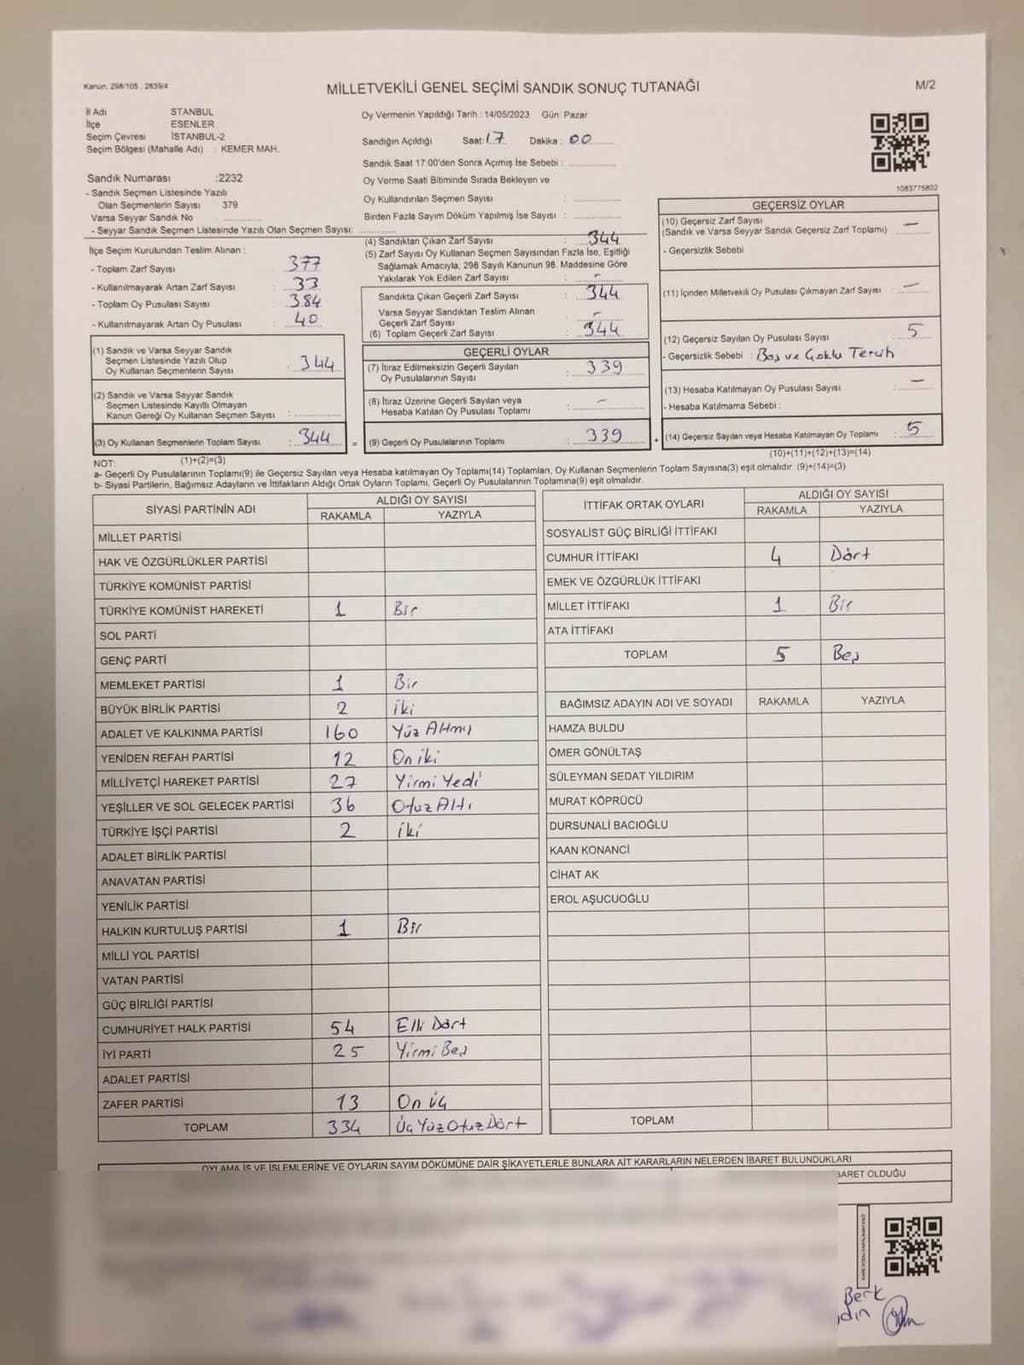 Kanun: 298/105 , 2839/4
MİLLETVEKİLİ GENEL SEÇİMİ SANDIK SONUÇ TUTANAĞI
M/2
İl Adı STANBUL
İlçe ESENLER
Seçim Çevresi İSTANBUL-2
Seçim Bölgesi (Mahalle Adı) : KEMER MAH.
Oy Vermenin Yapıldığı Tarih : 14/05/2023 Gün: Pazar
Sandığın Açıldığı Saat: 17 Dakika : 00
Sandık Saat 17:00'den Sonra Açımış İse Sebebi :
Oy Verme Saati Bitiminde Sırada Bekleyen ve
Oy Kullandırılan Seçmen Sayısı :
Birden Fazla Sayım Döküm Yapılmış İse Sayısı :
1083775802
Sandık Numarası :2232
- Sandık Seçmen Listesinde Yazılı
Olan Seçmenlerin Sayısı 379
Varsa Seyyar Sandık No
- Seyyar Sandık Seçmen Listesinde Yazılı Olan Seçmen Sayısı:
İlçe Seçim Kurulundan Teslim Alınan :
- Toplam Zarf Sayısı : 377
- Kullanılmayarak Artan Zarf Sayısı : 33
- Toplam Oy Pusulası Sayısı : 384
- Kullanılmayarak Artan Oy Pusulası : 40
(1) Sandık ve Varsa Seyyar Sandık
Seçmen Listesinde Yazılı Olup
Oy Kullanan Seçmenlerin Sayısı : 344
(2) Sandık ve Varsa Seyyar Sandık
Seçmen Listesinde Kayıtlı Olmayan
Kanun Gereği Oy Kullanan Seçmen Sayısı :
(3) Oy Kullanan Seçmenlerin Toplam Sayısı : 344
(1)+(2)=(3)
(4) Sandıktan Çıkan Zarf Sayısı : 344
(5) Zarf Sayısı Oy Kullanan Seçmen Sayısından Fazla İse, Eşitliği
Sağlamak Amacıyla, 298 Sayılı Kanunun 98. Maddesine Göre
Yakılarak Yok Edilen Zarf Sayısı : -
Sandıkta Çıkan Geçerli Zarf Sayısı : 344
Varsa Seyyar Sandıktan Teslim Alınan
Geçerli Zarf Sayısı : -
(6) Toplam Geçerli Zarf Sayısı : 344
GEÇERLİ OYLAR
(7) İtiraz Edilmeksizin Geçerli Sayılan
Oy Pusulalarının Sayısı : 339
(8) İtiraz Üzerine Geçerli Sayılan veya
Hesaba Katılan Oy Pusulası Toplamı : -
= (9) Geçerli Oy Pusulelarının Toplamı : 339
GEÇERSİZ OYLAR
(10) Geçersiz Zarf Sayısı
(Sandık ve Varsa Seyyar Sandık Geçersiz Zarf Toplamı) : -
- Geçersizlik Sebebi
(11) İçinden Milletvekili Oy Pusulası Çıkmayan Zarf Sayısı : -
(12) Geçersiz Sayılan Oy Pusulası Sayısı : 5
- Geçersizlik Sebebi : Boş ve Çoklu Tercih
(13) Hesaba Katılmayan Oy Pusulası Sayısı : -
- Hesaba Katılmama Sebebi :
+ (14) Geçersiz Sayılan veya Hesaba Katılmayan Oy Toplamı : 5
(10)+(11)+(12)+(13)=(14)
NOT:
a- Geçerli Oy Pusulalarının Toplamı(9) ile Geçersiz Sayılan veya Hesaba katılmayan Oy Toplamı(14) Toplamları, Oy Kullanan Seçmenlerin Toplam Sayısına(3) eşit olmalıdır. (9)+(14)=(3)
b- Siyasi Partilerin, Bağımsız Adayların ve İttifakların Aldığı Ortak Oyların Toplamı, Geçerli Oy Pusulalarının Toplamına(9) eşit olmalıdır.
SİYASİ PARTİNİN ADI ALDIĞI OY SAYISI
RAKAMLA YAZIYLA
MİLLET PARTİSİ
HAK VE ÖZGÜRLÜKLER PARTİSİ
TÜRKİYE KOMÜNİST PARTİSİ
TÜRKİYE KOMÜNİST HAREKETİ 1 Bir
SOL PARTİ
GENÇ PARTİ
MEMLEKET PARTİSİ 1 Bir
BÜYÜK BİRLİK PARTİSİ 2 iki
ADALET VE KALKINMA PARTİSİ 160 Yüz Altmış
YENİDEN REFAH PARTİSİ 12 On iki
MİLLİYETÇİ HAREKET PARTİSİ 27 Yirmi Yedi
YEŞİLLER VE SOL GELECEK PARTİSİ 36 Otuz Altı
TÜRKİYE İŞÇİ PARTİSİ 2 iki
ADALET BİRLİK PARTİSİ
ANAVATAN PARTİSİ
YENİLİK PARTİSİ
HALKIN KURTULUŞ PARTİSİ 1 Bir
MİLLİ YOL PARTİSİ
VATAN PARTİSİ
GÜÇ BİRLİĞİ PARTİSİ
CUMHURİYET HALK PARTİSİ 54 Elli Dört
İYİ PARTİ 25 Yirmi Beş
ADALET PARTİSİ
ZAFER PARTİSİ 13 On üç
TOPLAM 334 Üç Yüz Otuz Dört
İTTİFAK ORTAK OYLARI ALDIĞI OY SAYISI
RAKAMLA YAZIYLA
SOSYALİST GÜÇ BİRLİĞİ İTTİFAKI
CUMHUR İTTİFAKI 4 Dört
EMEK VE ÖZGÜRLÜK İTTİFAKI
MİLLET İTTİFAKI 1 Bir
ATA İTTİFAKI
TOPLAM 5 Beş
BAĞIMSIZ ADAYIN ADI VE SOYADI RAKAMLA YAZIYLA
HAMZA BULDU
ÖMER GÖNÜLTAŞ
SÜLEYMAN SEDAT YILDIRIM
MURAT KÖPRÜCÜ
DURSUNALİ BACIOĞLU
KAAN KONANCİ
CİHAT AK
EROL AŞUCUOĞLU
TOPLAM
OYLAMA İŞ VE İŞLEMLERİNE VE OYLARIN SAYIM DÖKÜMÜNE DAİR ŞİKAYETLERLE BUNLARA AİT KARARLARIN NELERDEN İBARET BULUNDUKLARI
BARET OLDUĞU
Berk